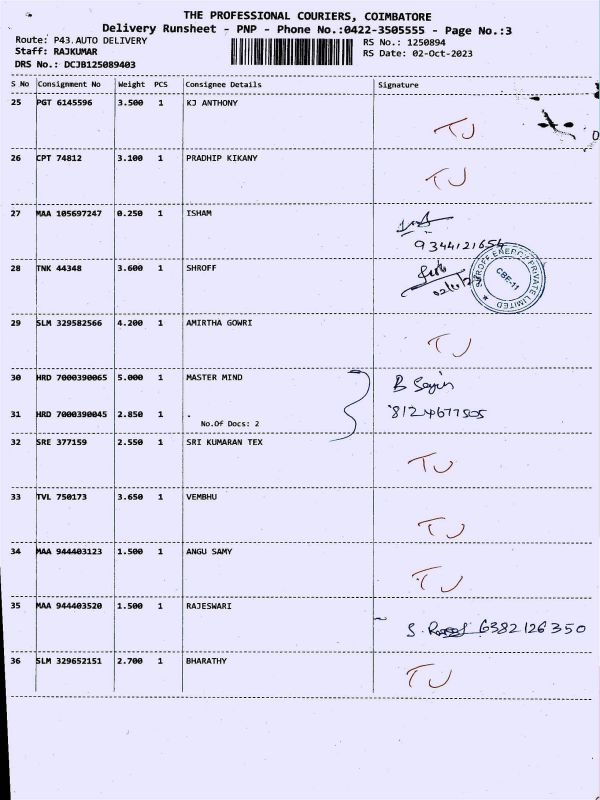 THE PROFESSIONAL COURIERS, COIMBATORE
Delivery Runsheet - PNP - Phone No.:0422-3505555 - Page No.:3
Route: P43.AUTO DELIVERY RS No.: 1250894
Staff: RAJKUMAR RS Date: 02-Oct-2023
DRS No.: DCJB125089403
S No Consignment No Weight PCS Consignee Details Signature
25 PGT 6145596 3.500 1 KJ ANTHONY
TJ
26 CPT 74812 3.100 1 PRADHIP KIKANY
TJ
27 MAA 105697247 0.250 1 ISHAM
9344121654
28 TNK 44348 3.600 1 SHROFF
SHROFF ENERGY PRIVATE LIMITED
CBE-11
29 SLM 329582566 4.200 1 AMIRTHA GOWRI
TJ
30 HRD 7000390065 5.000 1 MASTER MIND
B
31 HRD 7000390045 2.850 1 .
8124677505
No.Of Docs: 2
32 SRE 377159 2.550 1 SRI KUMARAN TEX
TJ
33 TVL 750173 3.650 1 VEMBHU
TJ
34 MAA 944403123 1.500 1 ANGU SAMY
TJ
35 MAA 944403520 1.500 1 RAJESWARI
S. 6382126350
36 SLM 329652151 2.700 1 BHARATHY
TJ